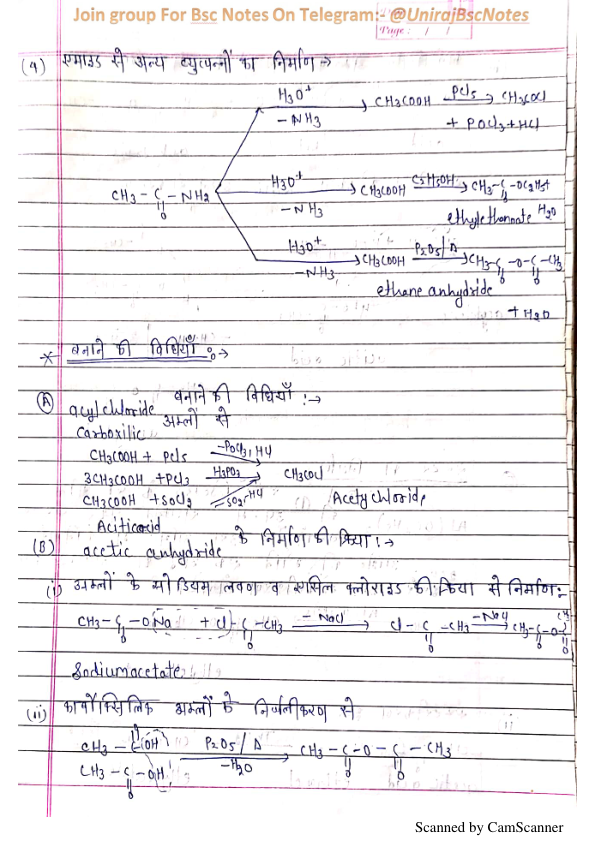 Join group For Bsc Notes On Telegram:- @UnirajBscNotes
Page: / /
(4) एमाइड से अन्य व्युत्पन्नों का निर्माण →
H3O+ CH3COOH PCl5 → CH3COCl
-NH3 + POCl3 + HCl
CH3 - C - NH2 H3O+ → CH3COOH C2H5OH → CH3-C-OC2H5+
O -NH3 O
ethylethanoate H2O
H3O+ → CH3COOH P2O5/Δ → CH3-C-O-C-CH3
-NH3 O O
ethane anhydride
+ H2O
* बनाने की विधियाँ :→
(A) acylchloride बनाने की विधियाँ :→
Carboxilic अम्लों से
CH3COOH + PCl5 -POCl3, HCl
3CH3COOH + PCl3 H3PO3 → CH3COCl
CH3COOH + SOCl2 -SO2, -HCl Acetychloride
Aciticacid
(B) acetic anhydride के निर्माण की क्रिया :→
(i) अम्लों के सोडियम लवण व एसिल क्लोराइड की क्रिया से निर्माण:-
CH3-C-ONa + Cl-C-CH3 -NaCl → Cl-C-CH3 -NaCl → CH3-C-O-C
O O O O O
Sodiumacetate
(ii) कार्बोक्सिलिक अम्लों के निर्जलीकरण से
CH3 - C-OH P2O5/Δ → CH3-C-O-C-CH3
CH3 - C - OH -H2O O O
O
Scanned by CamScanner